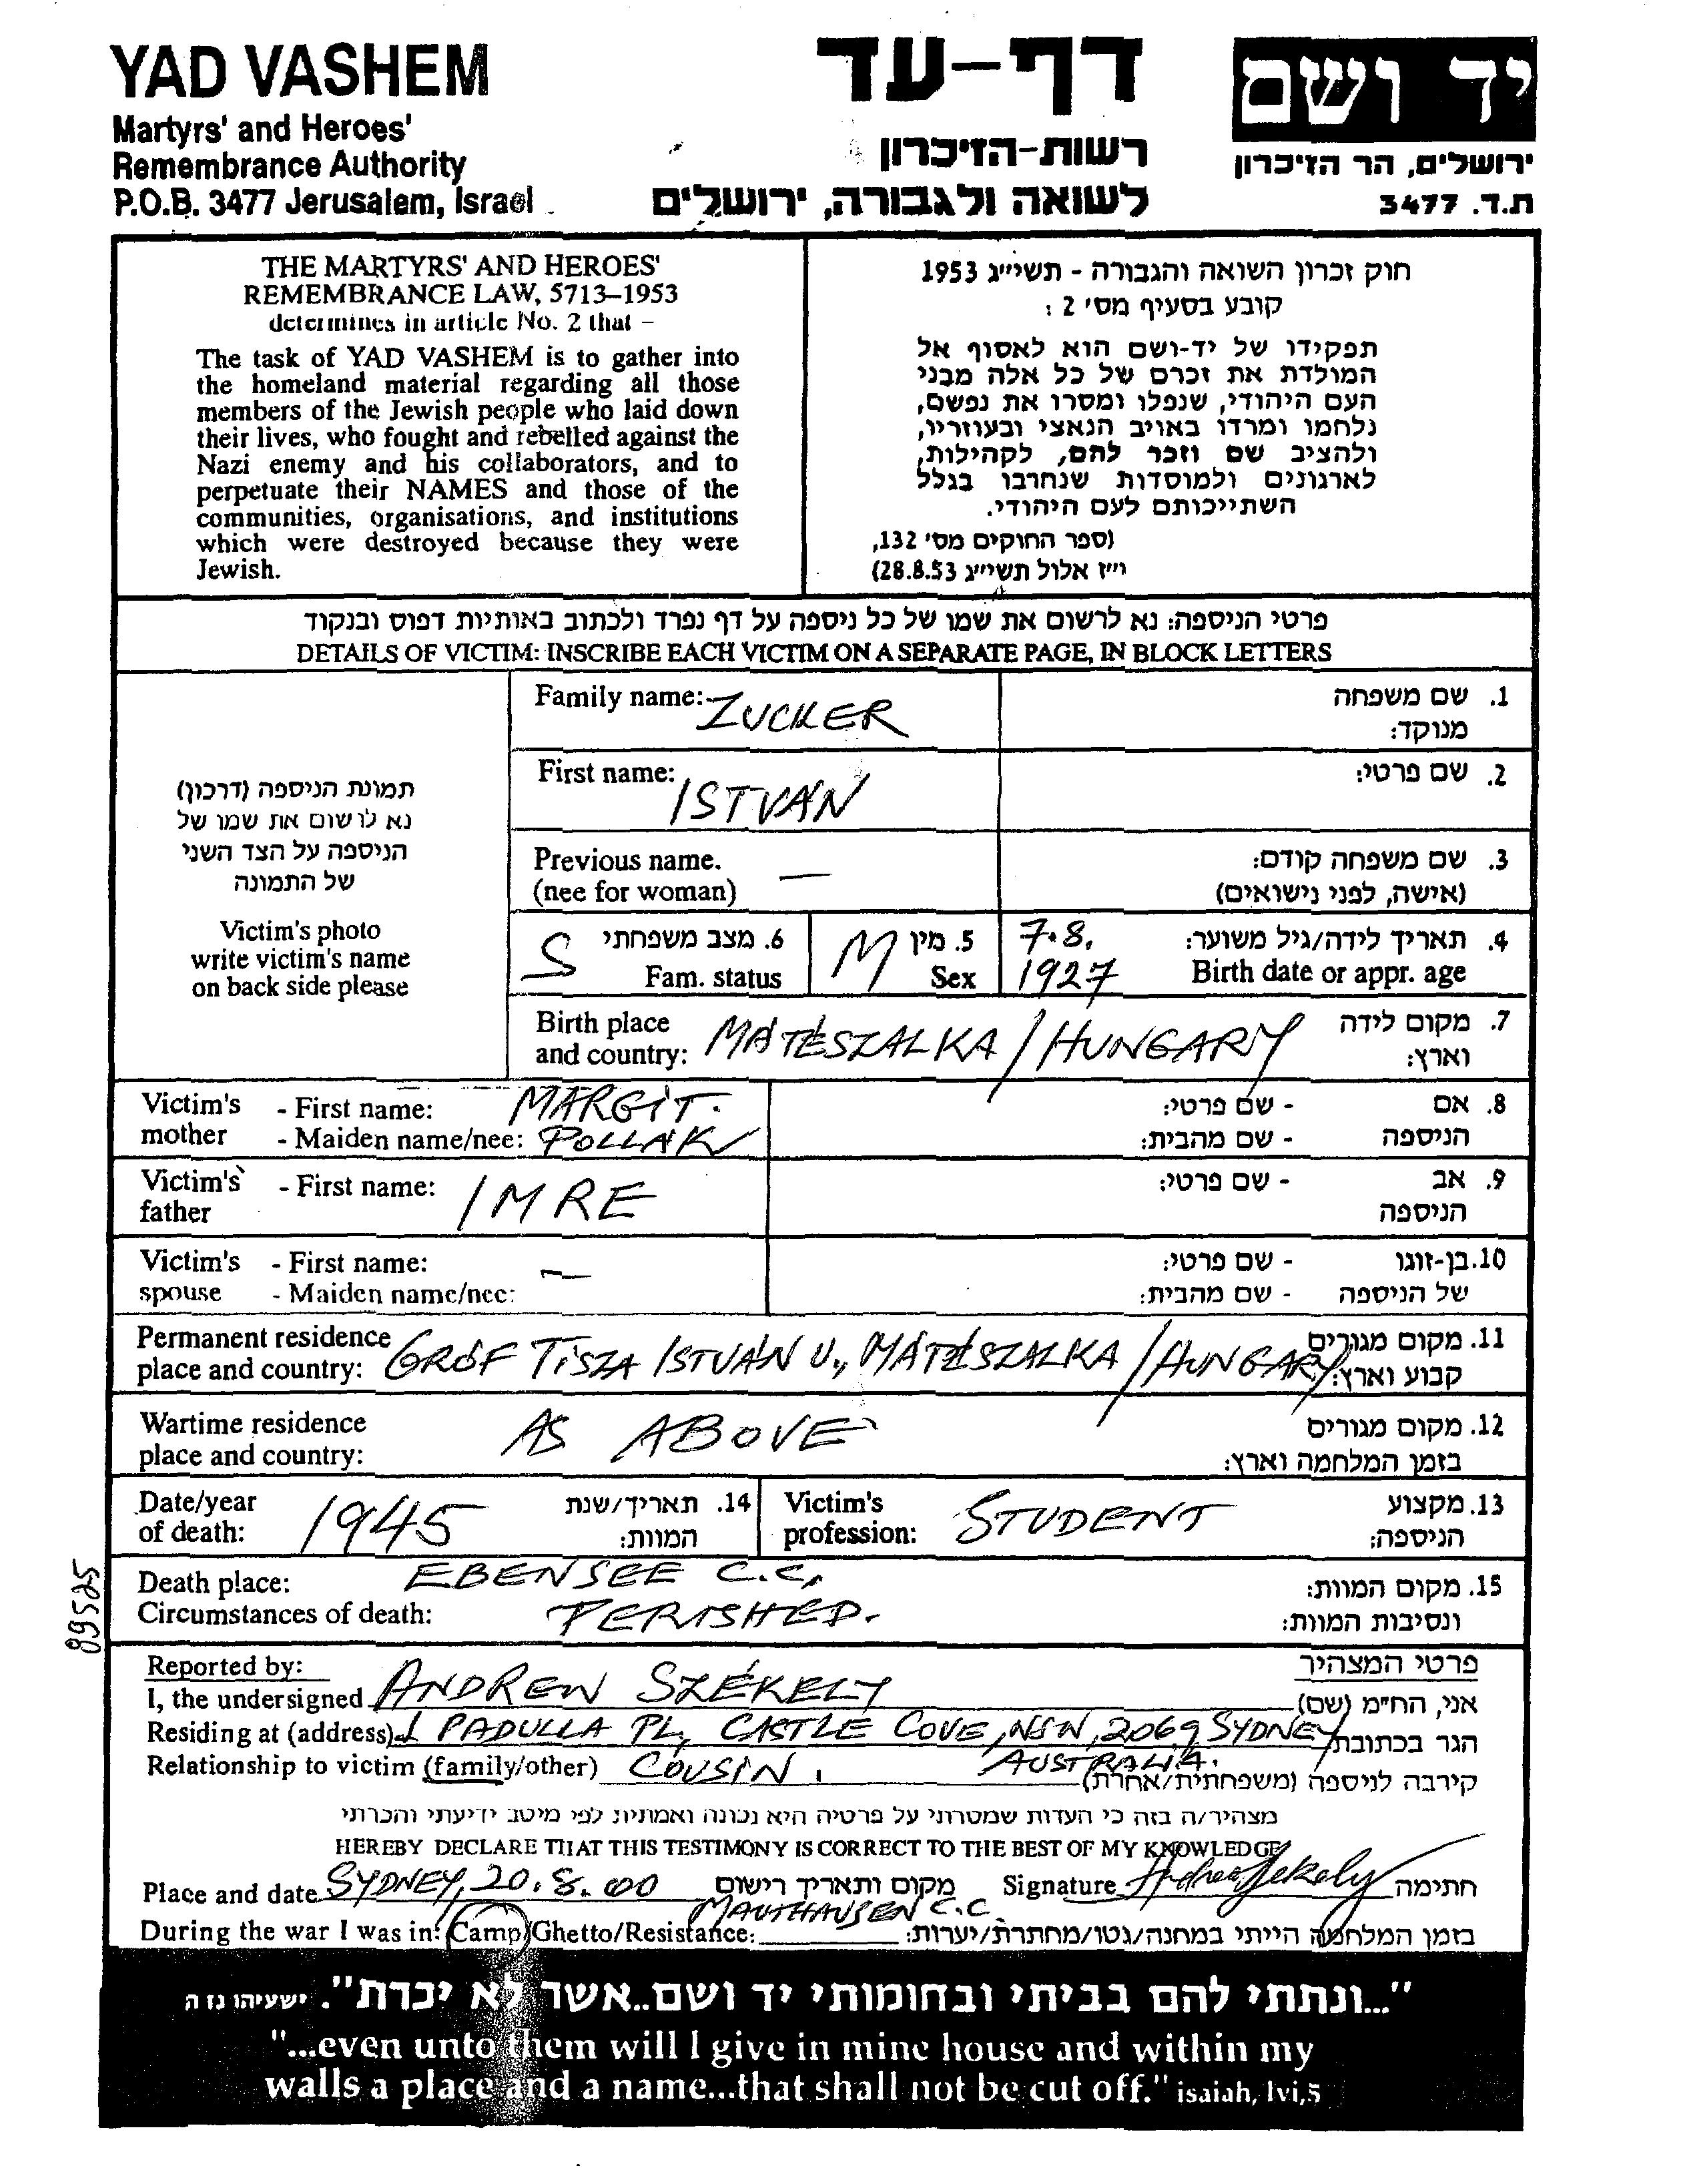 YAD VASHEM
Martyrs' and Heroes'
Remembrance Authority
P.O.B. 3477 Jerusalem, Israel
דף-עד
רשות-הזיכרון
לשואה ולגבורה, ירושלים
יד ושם
ירושלים, הר הזיכרון
ת.ד. 3477
THE MARTYRS' AND HEROES'
REMEMBRANCE LAW, 5713–1953
determines in article No. 2 that –
The task of YAD VASHEM is to gather into
the homeland material regarding all those
members of the Jewish people who laid down
their lives, who fought and rebelled against the
Nazi enemy and his collaborators, and to
perpetuate their NAMES and those of the
communities, organisations, and institutions
which were destroyed because they were
Jewish.
חוק זכרון השואה והגבורה - תשי״ג 1953
קובע בסעיף מס׳ 2 :
תפקידו של יד-ושם הוא לאסוף אל
המולדת את זכרם של כל אלה מבני
העם היהודי, שנפלו ומסרו את נפשם,
נלחמו ומרדו באויב הנאצי ובעוזריו,
ולהציב שם וזכר להם, לקהילות,
לארגונים ולמוסדות שנחרבו בגלל
השתייכותם לעם היהודי.
(ספר החוקים מס׳ 132,
י״ז אלול תשי״ג 28.8.53)
פרטי הניספה: נא לרשום את שמו של כל ניספה על דף נפרד ולכתוב באותיות דפוס ובנקוד
DETAILS OF VICTIM: INSCRIBE EACH VICTIM ON A SEPARATE PAGE, IN BLOCK LETTERS
תמונת הניספה (דרכון)
נא לרשום את שמו של
הניספה על הצד השני
של התמונה
Victim's photo
write victim's name
on back side please
Family name: ZUCKER 1. שם משפחה
מנוקד:
First name: ISTVÁN 2. שם פרטי:
Previous name. — 3. שם משפחה קודם:
(nee for woman) (אישה, לפני נישואים)
S 6. מצב משפחתי M 5. מין 7.8. 4. תאריך לידה/גיל משוער:
Fam. status Sex 1927 Birth date or appr. age
Birth place 7. מקום לידה
and country: MÁTÉSZALKA / HUNGARY וארץ:
Victim's - First name: MARGIT. 8. אם - שם פרטי:
mother - Maiden name/nee: POLLAK הניספה - שם מהבית:
Victim's - First name: IMRE 9. אב - שם פרטי:
father הניספה
Victim's - First name: — 10. בן-זוגו - שם פרטי:
spouse - Maiden name/nee: של הניספה - שם מהבית:
Permanent residence 11. מקום מגורים
place and country: GRÓF TISZA ISTVÁN U., MÁTÉSZALKA / HUNGARY קבוע וארץ:
Wartime residence 12. מקום מגורים
place and country: AS ABOVE בזמן המלחמה וארץ:
Date/year 1945 14. תאריך/שנת Victim's STUDENT 13. מקצוע
of death: המוות: profession: הניספה:
Death place: EBENSEE C.C. 15. מקום המוות:
Circumstances of death: PERISHED. ונסיבות המוות:
89525
Reported by: פרטי המצהיר
I, the undersigned ANDREW SZÉKELY אני, הח״מ (שם)
Residing at (address) 1 PADULLA PL, CASTLE COVE, NSW, 2069 SYDNEY הגר בכתובת
AUSTRALIA.
Relationship to victim (family/other) COUSIN. קירבה לניספה (משפחתית/אחרת)
מצהיר/ה בזה כי העדות שמסרתי על פרטיה היא נכונה ואמתית לפי מיטב ידיעתי והכרתי
HEREBY DECLARE THAT THIS TESTIMONY IS CORRECT TO THE BEST OF MY KNOWLEDGE
Place and date SYDNEY, 20.8.00 מקום ותאריך רישום Signature Andrew Szekely חתימה
MAUTHAUSEN C.C.
During the war I was in: Camp/Ghetto/Resistance: בזמן המלחמה הייתי במחנה/גטו/מחתרת/יערות:
"...ונתתי להם בביתי ובחומותי יד ושם..אשר לא יכרת". ישעיהו נו ה
"...even unto them will I give in mine house and within my
walls a place and a name...that shall not be cut off." isaiah, lvi,5